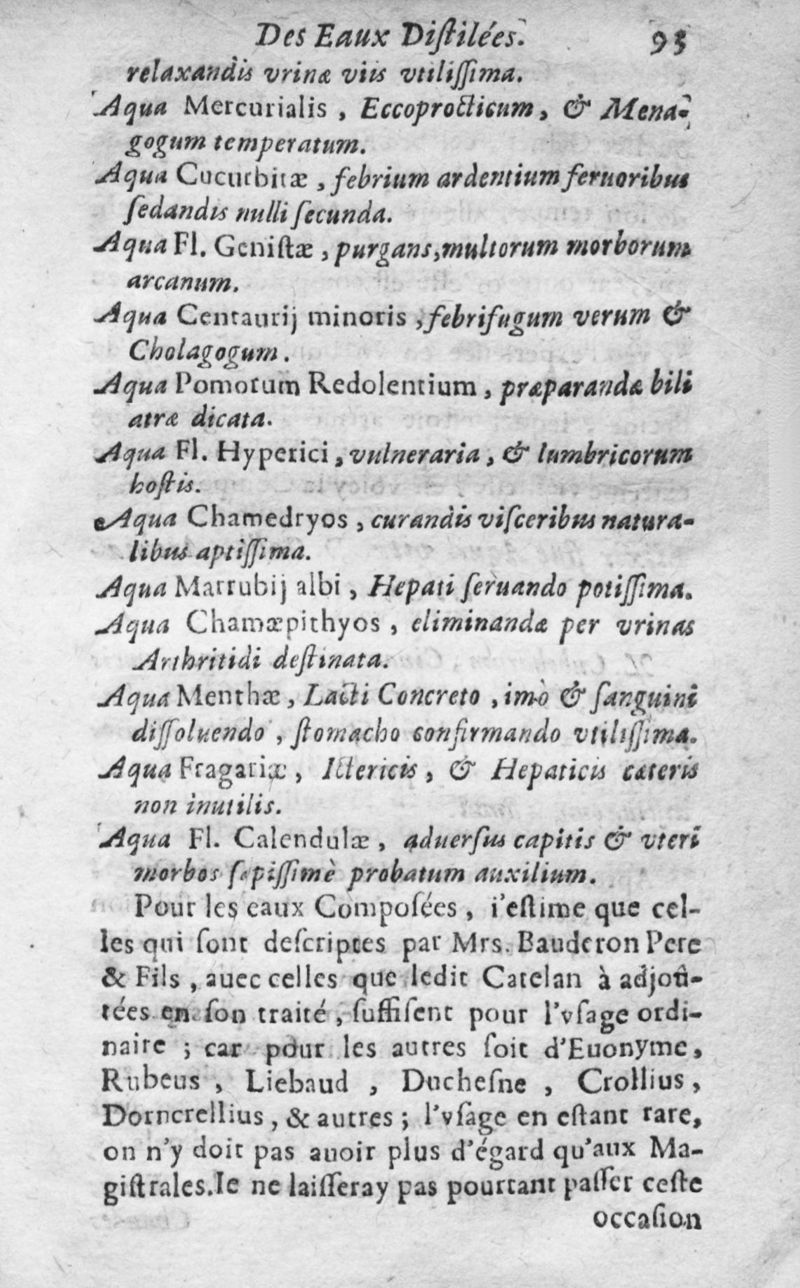 Des Eaux Diſtilées. 95
relaxandis vrinæ viis vtiliſſima.
Aqua Mercurialis, Eccoprocticum, & Mena-
gogum temperatum.
Aqua Cucurbitæ, febrium ardentium feruoribus
ſedandis nulli ſecunda.
Aqua Fl. Geniſtæ, purgans, multorum morborum
arcanum.
Aqua Centaurij minoris, febrifugum verum &
Cholagogum.
Aqua Pomorum Redolentium, præparandæ bili
atræ dicata.
Aqua Fl. Hyperici, vulneraria, & lumbricorum
hoſtis.
Aqua Chamedryos, curandis viſceribus natura-
libus aptiſſima.
Aqua Marrubij albi, Hepati ſeruando potiſſima.
Aqua Chamæpithyos, eliminandæ per vrinas
Arthritidi deſtinata.
Aqua Menthæ, Lacti Concreto, imò & ſanguini
diſſoluendo, ſtomacho confirmando vtiliſſima.
Aqua Fragariæ, Ictericis, & Hepaticis cæteris
non inutilis.
Aqua Fl. Calendulæ, aduerſus capitis & vteri
morbos ſæpiſſimè probatum auxilium.
Pour les eaux Compoſées, i'eſtime que cel-
les qui ſont deſcriptes par Mrs. Bauderon Pere
& Fils, auec celles que ledit Catelan à adjoû-
tées en ſon traité, ſuffiſent pour l'vſage ordi-
naire ; car pour les autres ſoit d'Euonyme,
Rubeus, Liebaud, Ducheſne, Crollius,
Dorncrellius, & autres ; l'vſage en eſtant rare,
on n'y doit pas auoir plus d'égard qu'aux Ma-
giſtrales. Ie ne laiſſeray pas pourtant paſſer ceſte
occaſion